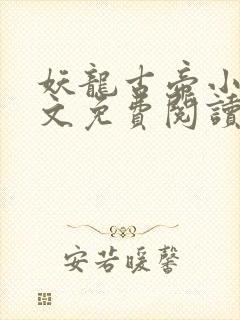 妖龍古帝小
文免費閱讀
安若暖馨